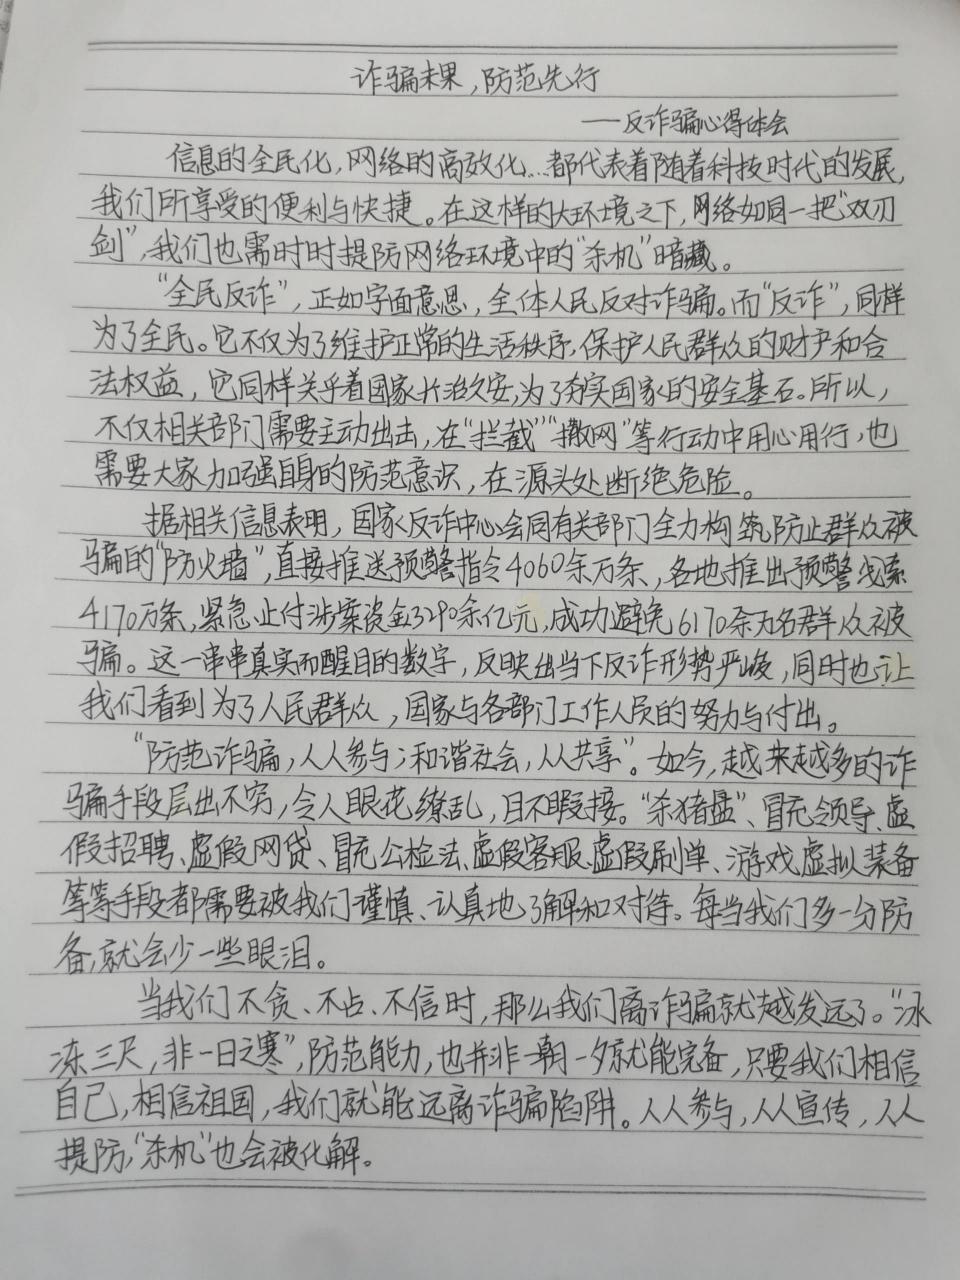 诈骗未果,防范先行
——反诈骗心得体会
信息的全民化,网络的高效化...都代表着随着科技时代的发展,
我们所享受的便利与快捷。在这样的大环境之下,网络如同一把“双刃
剑”,我们也需时时提防网络环境中的“杀机”暗藏。
“全民反诈”,正如字面意思,全体人民反对诈骗。而“反诈”,同样
为了全民。它不仅为了维护正常的生活秩序,保护人民群众的财产和合
法权益,它同样关乎着国家长治久安,为了夯实国家的安全基石。所以,
不仅相关部门需要主动出击,在“拦截”“撒网”等行动中用心用行,也
需要大家加强自身的防范意识,在源头处断绝危险。
据相关信息表明,国家反诈中心会同有关部门全力构筑防止群众被
骗的“防火墙”,直接推送预警指令4060余万条,各地推出预警线索
4170万条,紧急止付涉案资金3290余亿元,成功避免6170余万名群众被
骗。这一串串真实而醒目的数字,反映出当下反诈形势严峻,同时也让
我们看到为了人民群众,国家与各部门工作人员的努力与付出。
“防范诈骗,人人参与;和谐社会,人人共享”。如今,越来越多的诈
骗手段层出不穷,令人眼花缭乱,目不暇接。“杀猪盘”、冒充领导、虚
假招聘、虚假网贷、冒充公检法、虚假客服、虚假刷单、游戏虚拟装备
等等手段都需要被我们谨慎、认真地了解和对待。每当我们多一分防
备,就会少一些眼泪。
当我们不贪、不占、不信时,那么我们离诈骗就越发远了。“冰
冻三尺,非一日之寒”,防范能力,也并非一朝一夕就能完备,只要我们相信
自己,相信祖国,我们就能远离诈骗陷阱。人人参与,人人宣传,人人
提防,“杀机”也会被化解。